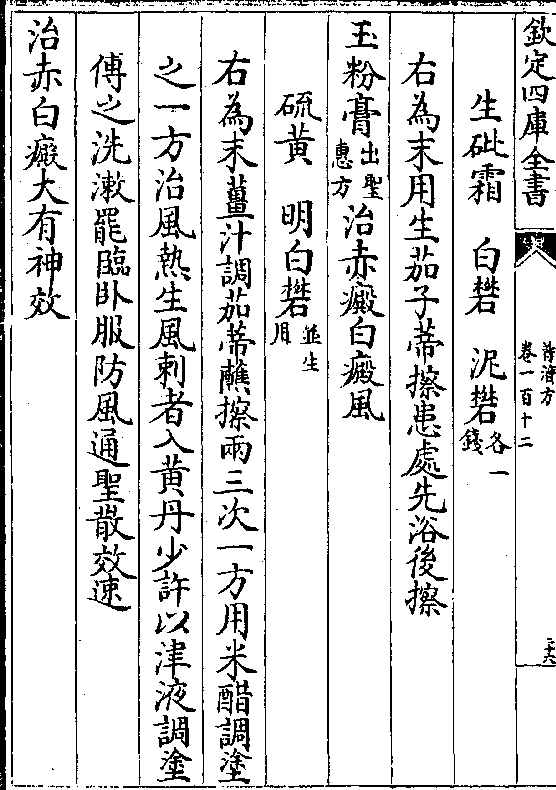 欽定四庫全書
普濟方
卷一百十二
二十六
生砒霜　白礬　泥礬各一錢
右為末用生茄子蒂擦患處先浴後擦
玉粉膏出聖惠方治赤癜白癜風
硫黃　明白礬並生用
右為末薑汁調茄蒂蘸擦兩三次一方用米醋調塗
之一方治風熱生風刺者入黃丹少許以津液調塗
傅之洗漱罷臨臥服防風通聖散效速
治赤白癜大有神效